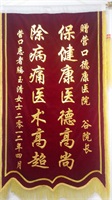 赠营口德康医院 谷院长
保健康医德高尚
除病痛医水高超
营口患者 玉清女士二零一二年四月